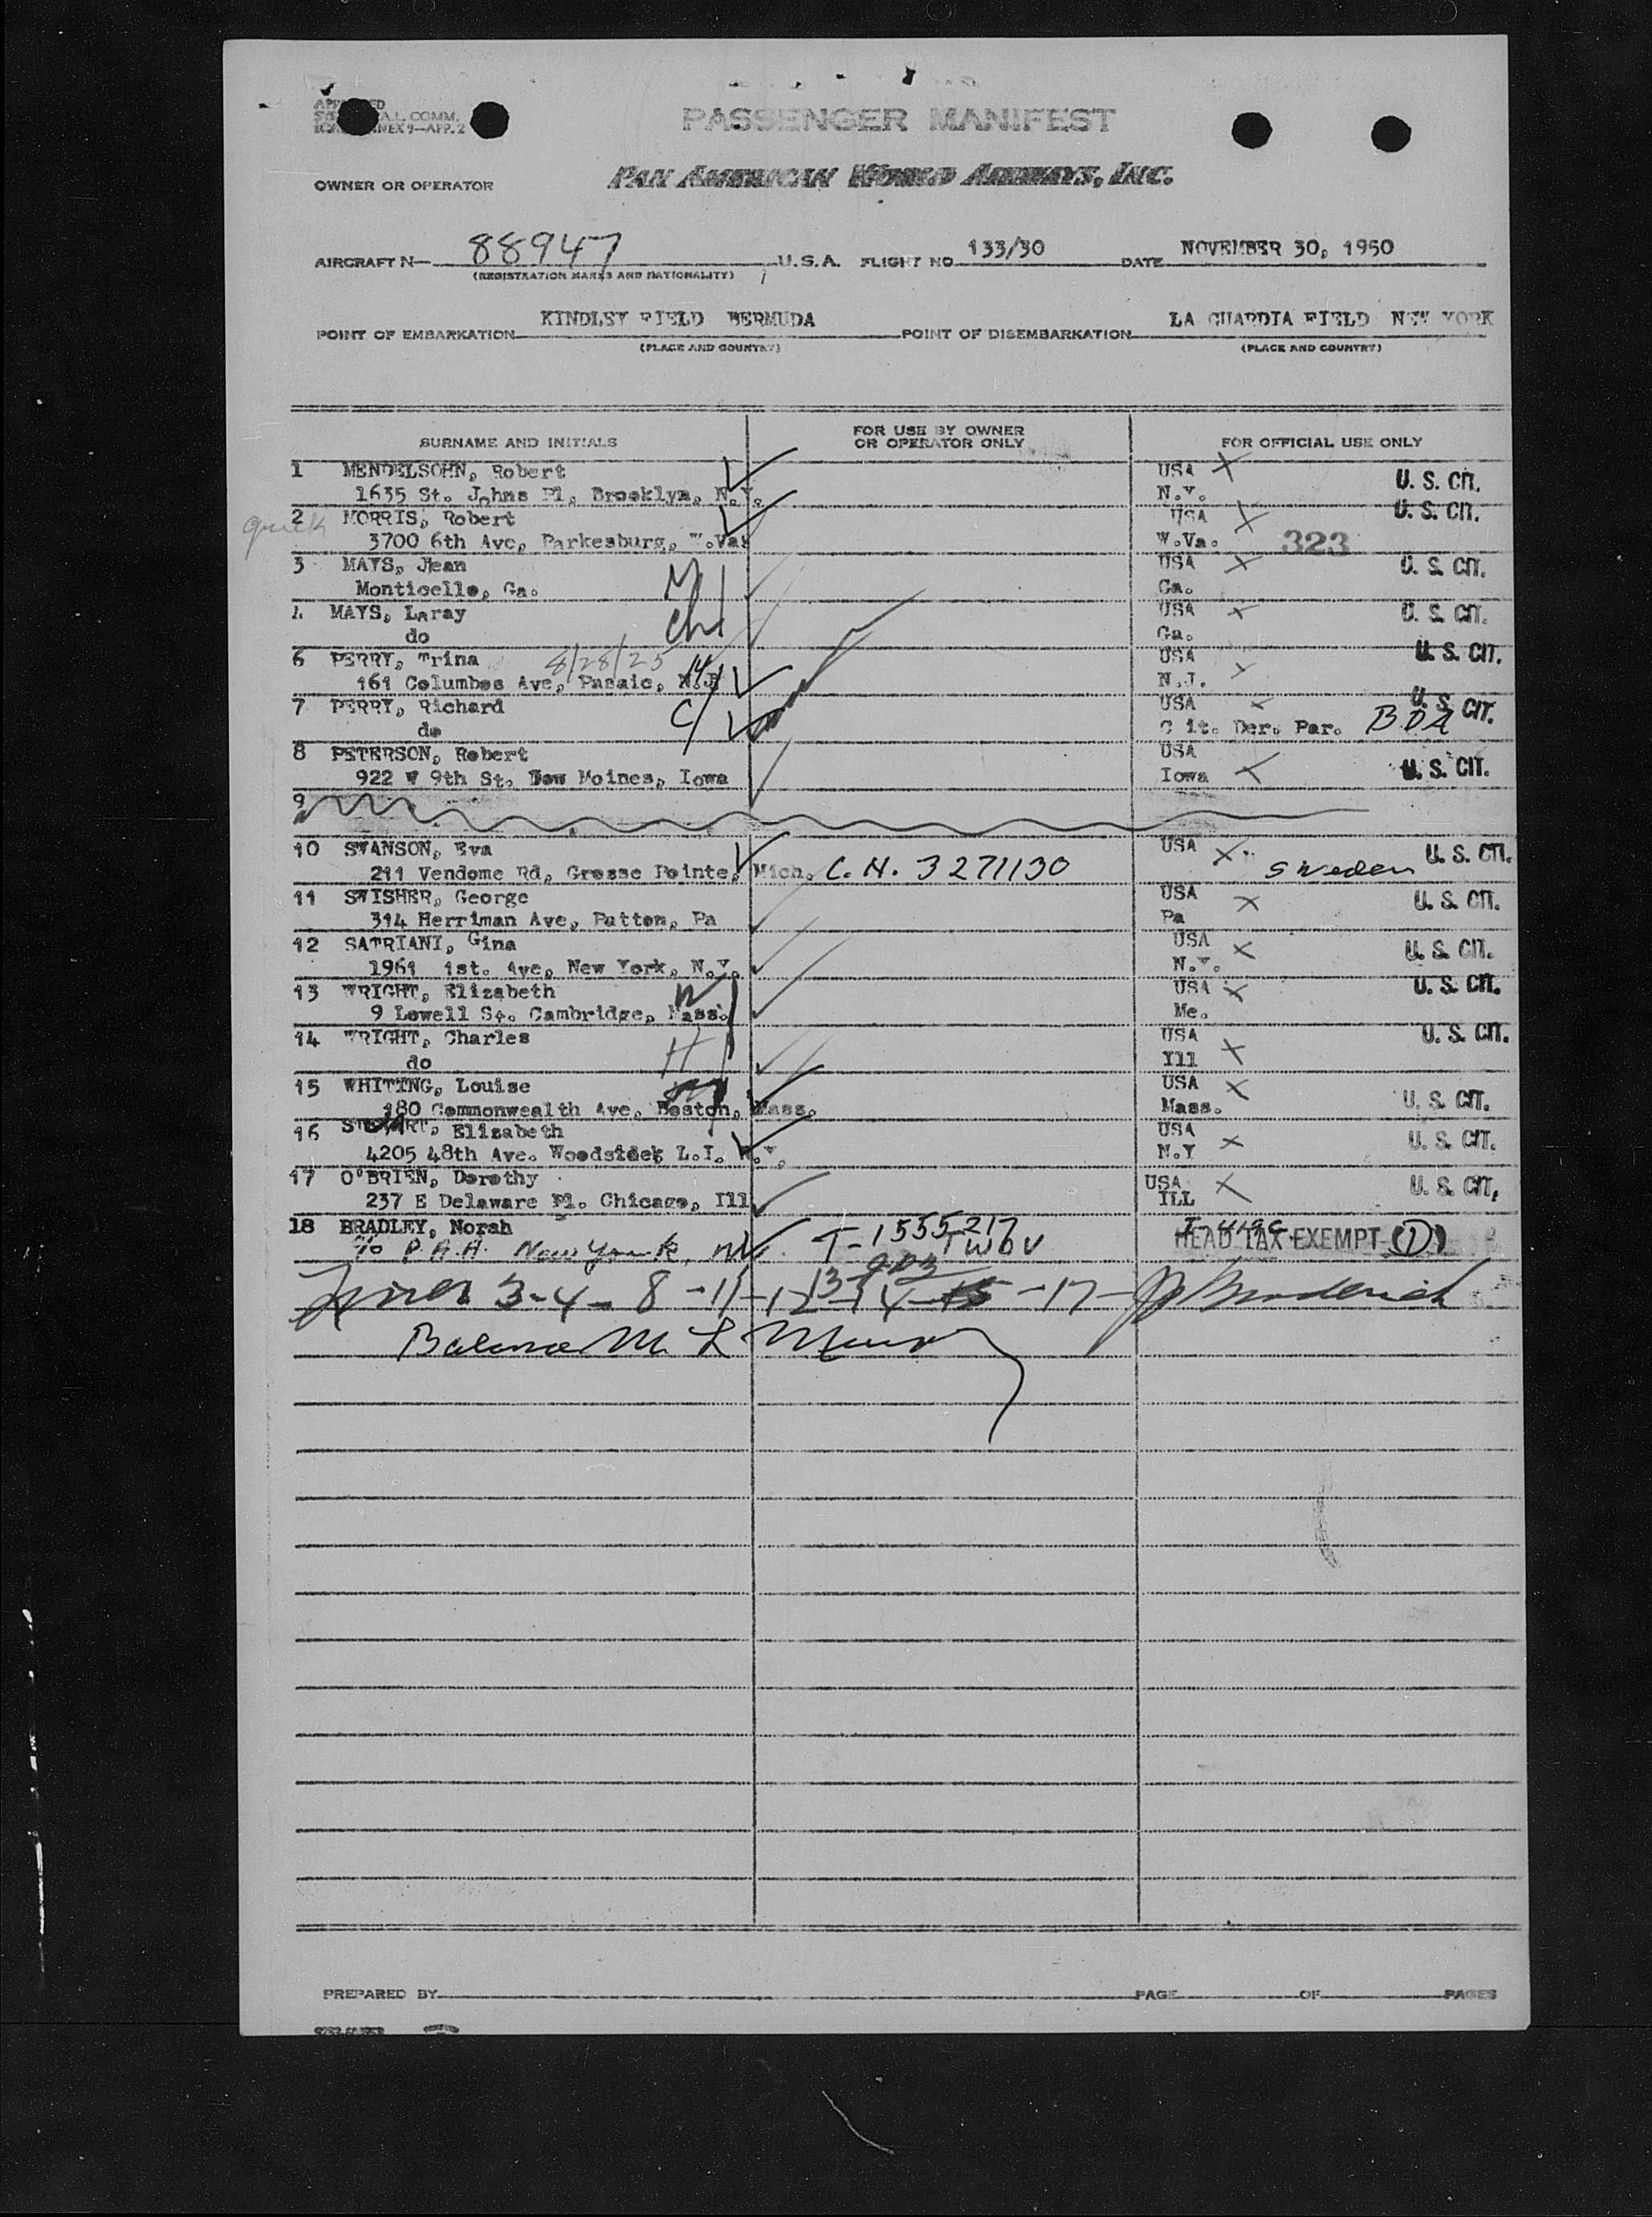 PASSENGER MANIFEST
OWNER OR OPERATOR PAN AMERICAN WORLD AIRWAYS, INC.
AIRCRAFT N— 88947 U.S.A. FLIGHT NO 133/30 DATE NOVEMBER 30, 1950
(REGISTRATION MARKS AND NATIONALITY)
POINT OF EMBARKATION KINDLEY FIELD BERMUDA POINT OF DISEMBARKATION LA GUARDIA FIELD NEW YORK
(PLACE AND COUNTRY) (PLACE AND COUNTRY)
SURNAME AND INITIALS FOR USE BY OWNER OR OPERATOR ONLY FOR OFFICIAL USE ONLY
1 MENDELSOHN, Robert USA X U. S. CIT.
1635 St. Johns Pl, Brooklyn, N.Y. N.Y.
quick 2 MORRIS, Robert USA X U. S. CIT.
3700 6th Ave, Parkesburg, W.Va. W.Va. 323
3 MAYS, Jean USA X U. S. CIT.
Monticello, Ga. Ga.
4 MAYS, Laray USA X U. S. CIT.
do Ga.
6 PERRY, Trina 8/28/25 USA U. S. CIT.
161 Columbos Ave, Pasaic, N.J N.J. X
7 PERRY, Richard C USA X U. S. CIT.
do Cit. Der. Par. BDA
8 PETERSON, Robert USA
922 W 9th St. Dew Moines, Iowa Iowa X U. S. CIT.
9
10 SWANSON, Eva USA X U. S. CIT.
211 Vendome Rd, Grosse Pointe, Mich. C.N. 3271130 Sweden
11 SWISHER, George USA X U. S. CIT.
314 Herriman Ave, Patton, Pa Pa
12 SATRIANI, Gina USA X U. S. CIT.
1961 1st. Ave, New York, N.Y. N.Y.
13 WRIGHT, Elizabeth USA X U. S. CIT.
9 Lowell St. Cambridge, Mass. Me.
14 WRIGHT, Charles H USA X U. S. CIT.
do Ill
15 WHITING, Louise USA X
180 Commonwealth Ave, Boston, Mass. Mass. U. S. CIT.
16 STEWART, Elizabeth USA X U. S. CIT.
4205 48th Ave. Woodside, L.I. N.Y. N.Y
17 O'BRIEN, Dorothy USA X U. S. CIT.
237 E Delaware Pl. Chicago, Ill ILL
18 BRADLEY, Norah T-1555217 HEAD TAX EXEMPT (1)
c/o P.A.A. New York, NY. TWOV
3-4-8-11-12-13-14-15-17
Balance M. L
PREPARED BY PAGE OF PAGES